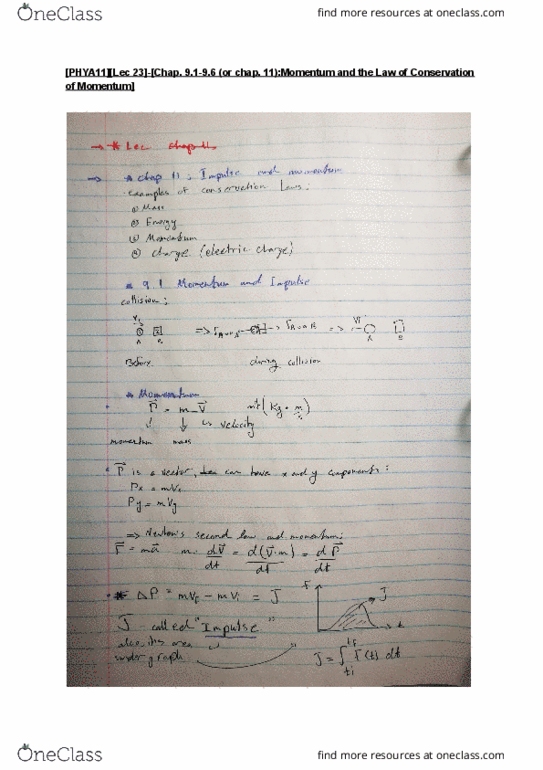 OneClass
find more resources at oneclass.com
[PHYA11][Lec 23]-[Chap. 9.1-9.6 (or chap. 11):Momentum and the Law of Conservation
of Momentum]
→ * Lec chap 11
→ * chap 11: Impulse and momentum
examples of conservation Laws:
① Mass
② Energy
③ Momentum
④ charge (electric charge)
* 9.1 Momentum and Impulse
collision;
Before during collision
* Momentum
P = m V unit (kg · m/s)
↓ ↓ ↳ velocity
momentum mass
P is a vector, can have x and y components:
Px = mVx
Py = mVy
⇒ Newton's second law and momentum:
F = ma = m dV/dt = d(V·m)/dt = dP/dt
* ΔP = mVf - mVi = J
J - called "Impulse"
also, its area
under graph
F J t
J = ∫ti^tf F(t) dt
OneClass
find more resources at oneclass.com